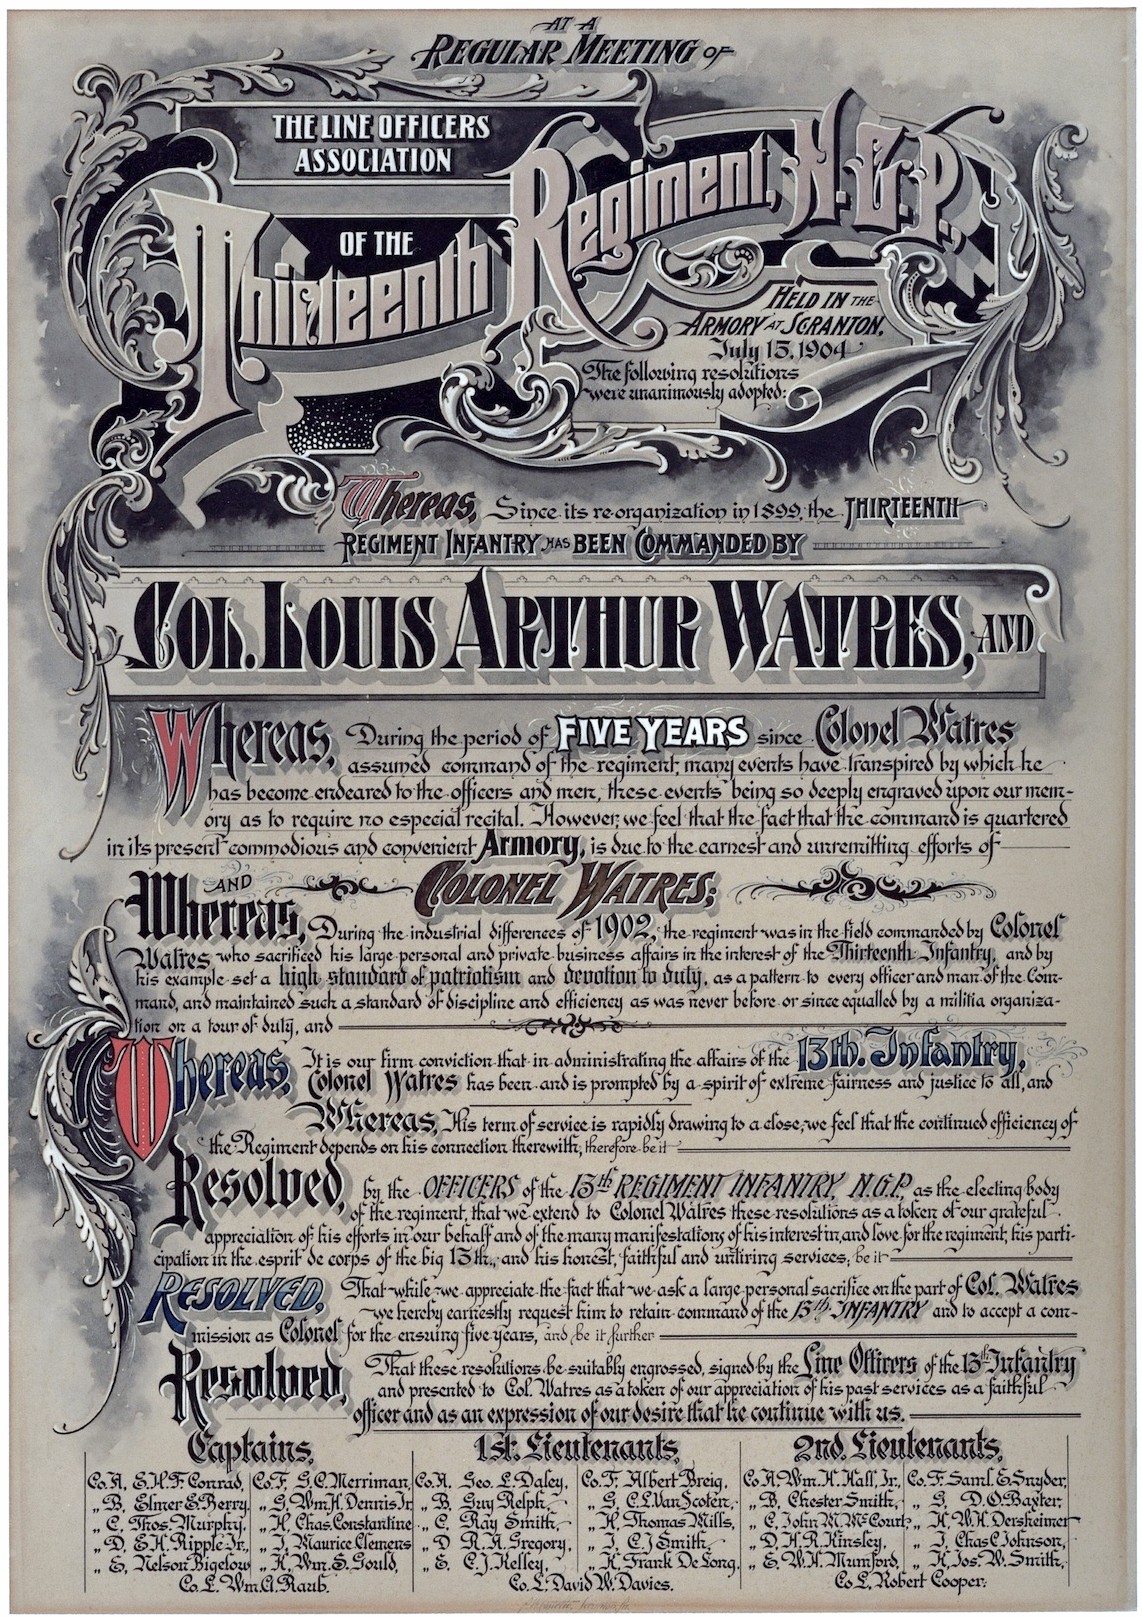 AT A
REGULAR MEETING OF
THE LINE OFFICERS
ASSOCIATION
OF THE
Thirteenth Regiment, N.G.P.,
HELD IN THE
ARMORY AT SCRANTON,
July 13, 1904
The following resolutions
were unanimously adopted:
Whereas, Since its re-organization in 1899, the THIRTEENTH
REGIMENT INFANTRY HAS BEEN COMMANDED BY
COL. LOUIS ARTHUR WATRES, AND
Whereas, During the period of FIVE YEARS since Colonel Watres
assumed command of the regiment, many events have transpired by which he
has become endeared to the officers and men, these events being so deeply engraved upon our mem-
ory as to require no especial recital. However, we feel that the fact that the command is quartered
in its present commodious and convenient Armory, is due to the earnest and unremitting efforts of
COLONEL WATRES;
AND
Whereas, During the industrial differences of 1902, the regiment was in the field commanded by Colonel
Watres who sacrificed his large personal and private business affairs in the interest of the Thirteenth Infantry, and by
his example set a high standard of patriotism and devotion to duty, as a pattern to every officer and man of the Com-
mand, and maintained such a standard of discipline and efficiency as was never before or since equalled by a militia organiza-
tion on a tour of duty, and
Whereas, It is our firm conviction that in administrating the affairs of the 13th. Infantry,
Colonel Watres has been and is prompted by a spirit of extreme fairness and justice to all, and
Whereas, His term of service is rapidly drawing to a close, we feel that the continued efficiency of
the Regiment depends on his connection therewith; therefore be it
Resolved, by the OFFICERS of the 13th REGIMENT INFANTRY, N.G.P., as the electing body
of the regiment, that we extend to Colonel Watres these resolutions as a token of our grateful
appreciation of his efforts in our behalf and of the many manifestations of his interest in, and love for the regiment; his parti-
cipation in the esprit de corps of the big 13th., and his honest, faithful and untiring services; be it
RESOLVED, That while we appreciate the fact that we ask a large personal sacrifice on the part of Col. Watres
we hereby earnestly request him to retain command of the 13th INFANTRY and to accept a com-
mission as Colonel for the ensuing five years, and be it further
Resolved, That these resolutions be suitably engrossed, signed by the Line Officers of the 13th Infantry
and presented to Col. Watres as a token of our appreciation of his past services as a faithful
officer and as an expression of our desire that he continue with us.
Captains,
Co. A, E.H.F. Conrad,
" B, Elmer E. Berry
" C, Thos. Murphy,
" D, E.H. Ripple Jr.,
" E, Nelson Bigelow
Co. F, S.C. Merriman,
" G, Wm. H. Dennis Jr
" H, Chas. Constantine
" I, Maurice Clemens
" K, Wm. S. Gould,
Co. L, Wm. A. Raub.
1st. Lieutenants,
Co. A, Geo. L. Daley,
" B, Guy Relph,
" C, Ray Smith,
" D R.A. Gregory,
" E, C.J. Kelley,
Co. F, Albert Breig,
" G, C.L. Van Scoten,
" H, Thomas Mills,
" I, C.J. Smith,
" K, Frank De Long,
Co. L, David W. Davies.
2nd. Lieutenants,
Co. A, Wm. H. Hall, Jr.,
" B, Chester Smith,
" C, John M. McCourt,
" D, H.R. Kinsley,
" E, W.H. Mumford,
Co. F, Saml. E. Snyder,
" G, D.O. Baxter,
" H, W.H. Dersheimer
" I, Chas. C. Johnson,
" K, Jos. W. Smith,
Co. L, Robert Cooper.